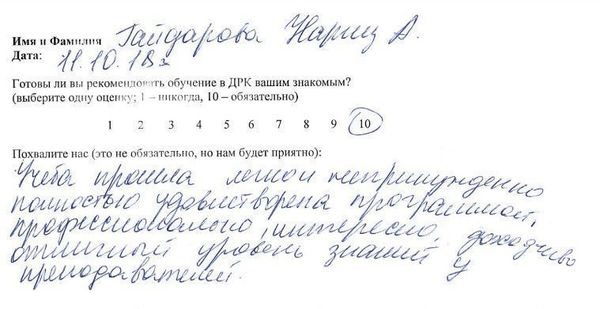 Имя и Фамилия Гайдарова Нариц А.
Дата: 11.10.18г
Готовы ли вы рекомендовать обучение в ДРК вашим знакомым?
(выберите одну оценку; 1 – никогда, 10 – обязательно)
1 2 3 4 5 6 7 8 9 10
Похвалите нас (это не обязательно, но нам будет приятно):
Учёба прошла легко и непринужденно
полностью удовлетворена программой,
профессионально, интересно, доходчиво
отличный уровень знаний у
преподавателей.